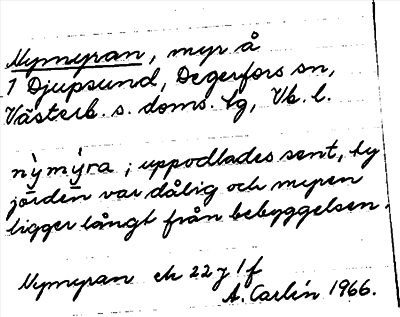 Nymyran, myr å
1 Djupsund, Degerfors sn,
Västerb. s. doms. tg, Vb. l.
nỳmýra; uppodlades sent, ty
jorden var dålig och myren
ligger långt från bebyggelsen.
Nymyran ek 22 J 1 f
A. Carlén 1966.